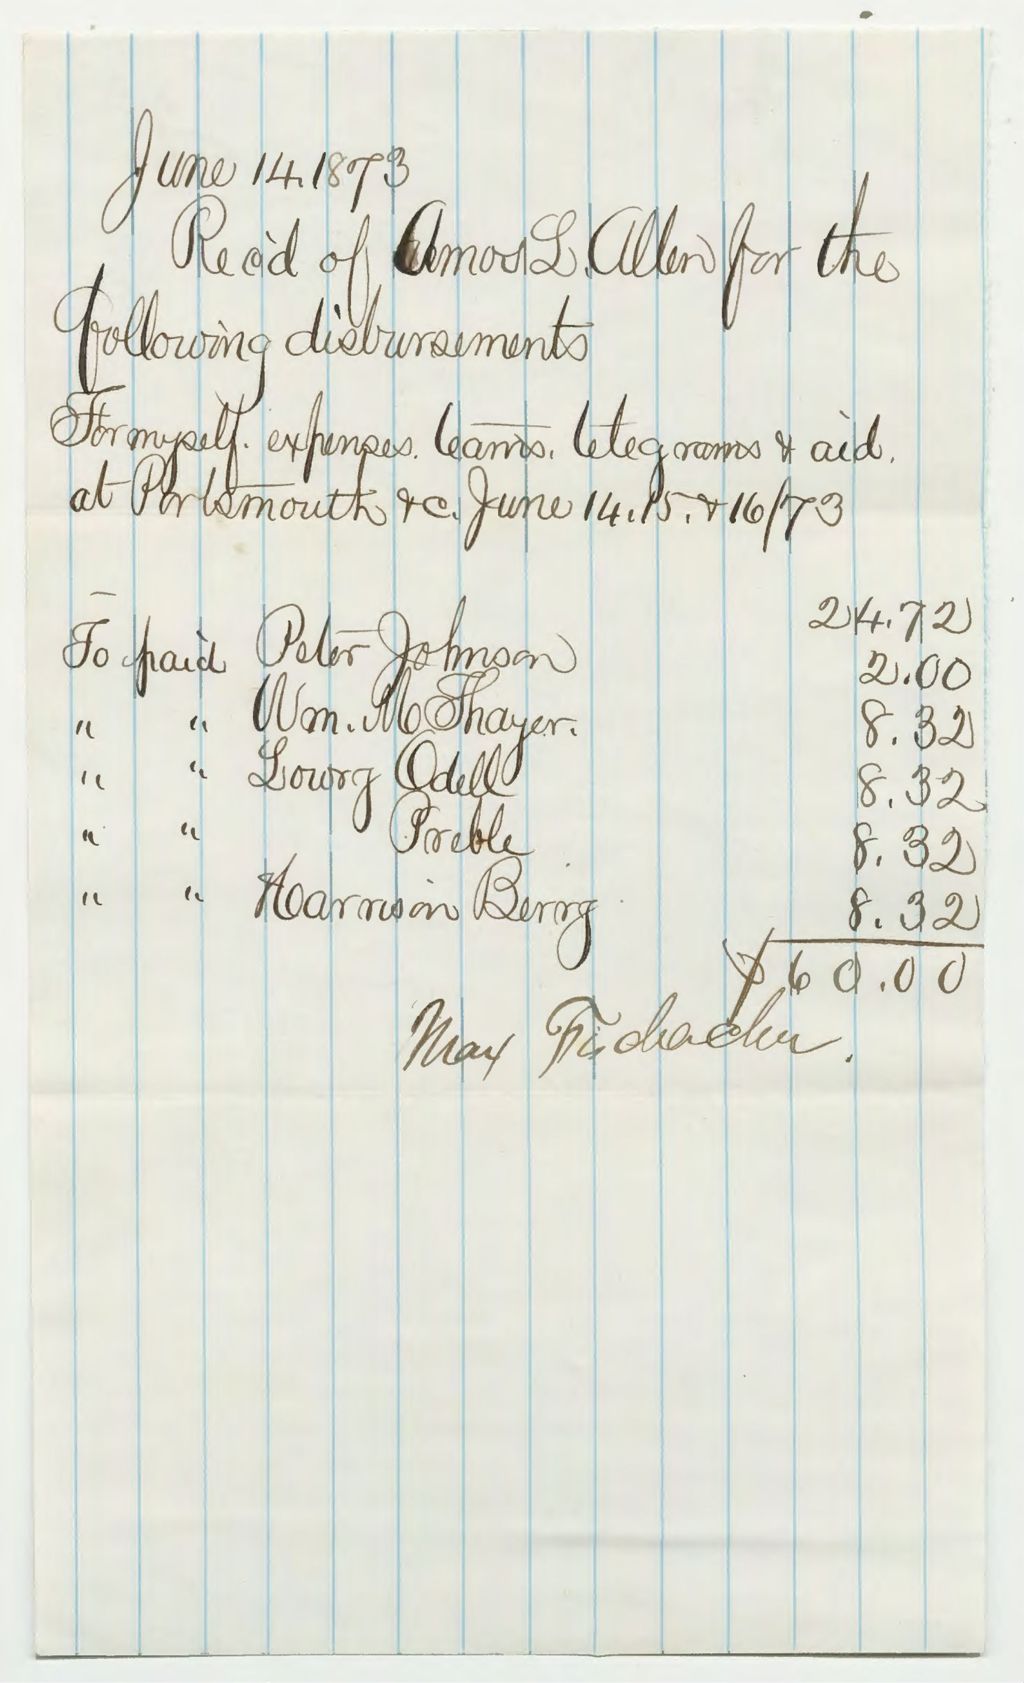 June 14. 1873
Rec'd of Amos L. Allen for the
following disbursements
For myself. expenses. teams. telegrams & aid.
at Portsmouth &c. June 14. 15. & 16/73
24.72
To paid Peter Johnson 2.00
" " Wm. M Thayer. 8.32
" " Lowry Odell 8.32
" " Preble 8.32
" " Harrison Berry 8.32
$60.00
Max